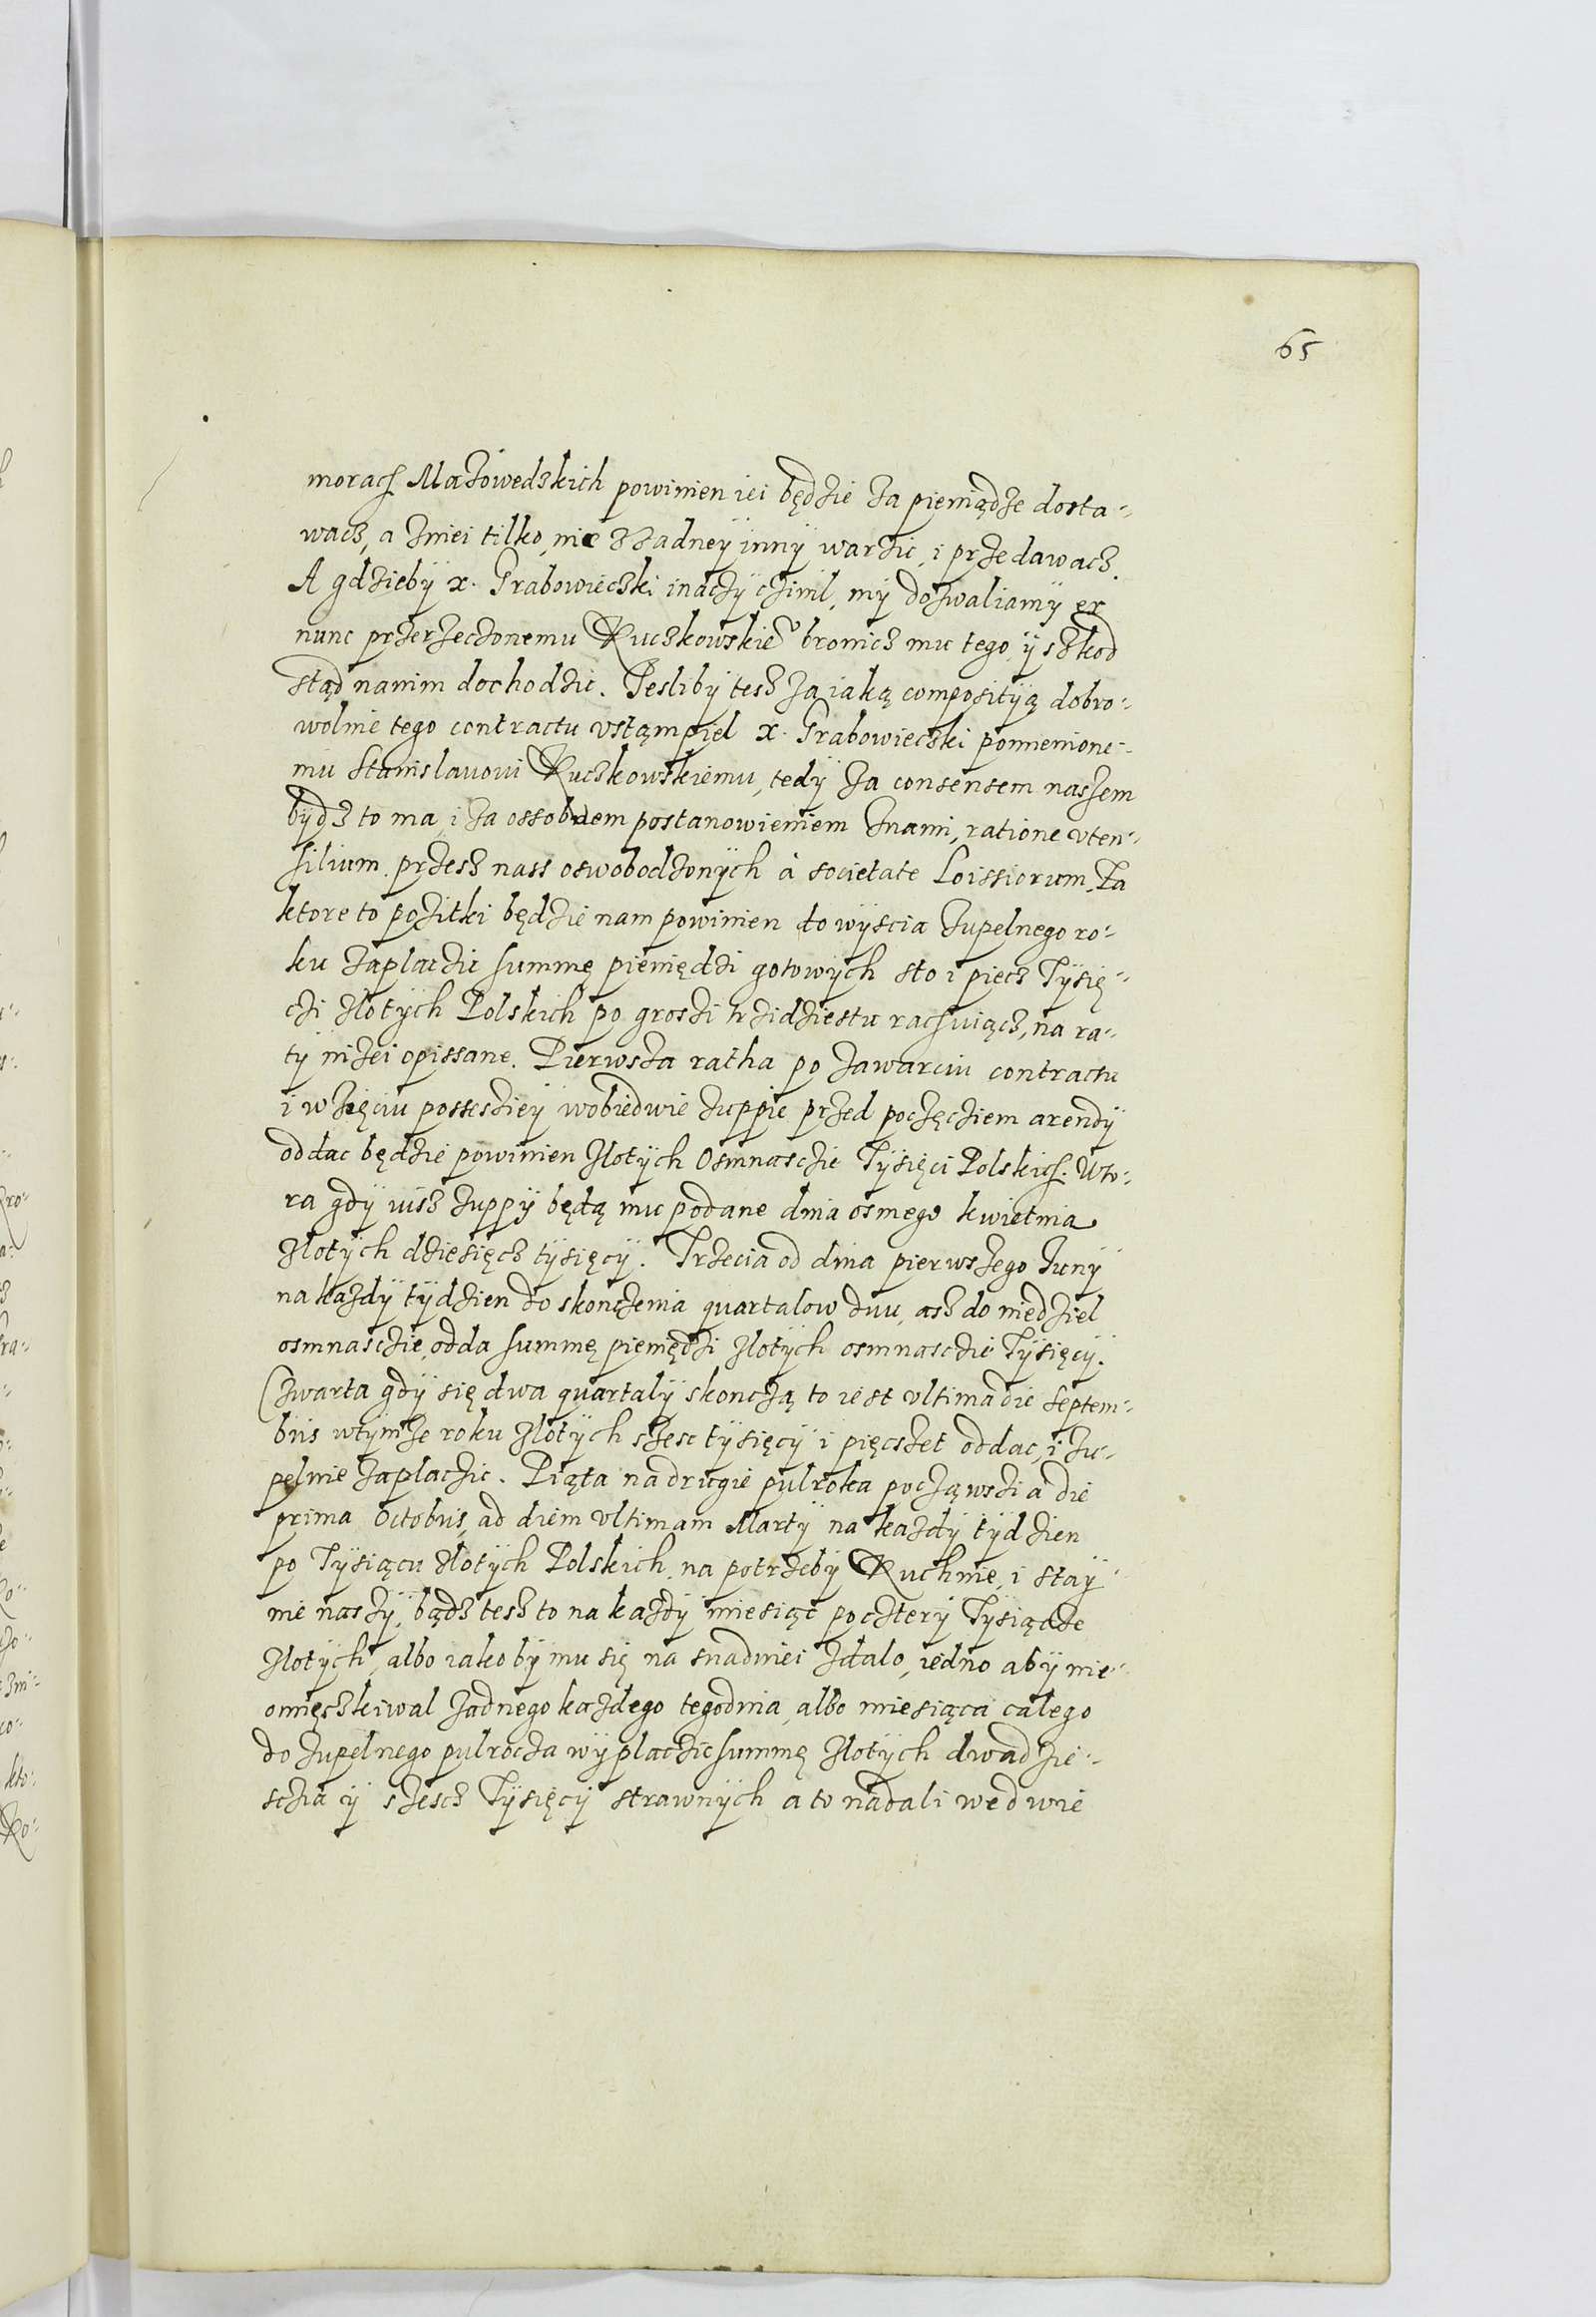 65
morach Mazowedskich powinien iei będzie za pieniądze dosta-
wacz, a zniei tilko, nie z żadneÿ innÿ warzic, i przedawacz.
A gdziebÿ x. Grabowieczki inaczÿ czinil, mÿ dozwaliamÿ ex
nunc przerzeczonemu Kuczkowskieo bronicz mu tego, ÿ szkod
stąd nanim dochodzic. Jeslibÿ tesz za iaką compositÿą dobro-
wolnie tego contractu vstąmpiel x. Grabowieczki pomienione-
mu Stanislauoui Kuczkowskiemu, tedÿ za consensem naszem
bÿdz to ma, i za ossobnem postanowieniem znami, ratione vten-
silium przesz nass oswobodzonÿch à societate Loissiorum. Za
ktore to pozitki będzie nam powinien do wÿscia zupelnego ro-
ku zaplacic summę pieniędzi gotowÿch sto i piecz Tÿsię-
czi zlotÿch Polskich po groszi trzidziestu rachuiącz, na ra-
tÿ nizei opissane. Pierwsza ratha po zawarciu contractu
i wzięciu possesziei wobiedwie zuppie przed poczęciem arendÿ
oddac będzie powinien zlotÿch Osmnascie Tÿsięci Polskich. Wto-
ra gdÿ iusz zuppÿ będą mu podane dnia osmego kwietnia
zlotÿch dziesięcz tÿsięcÿ. Trzecia od dnia pierwszego Junÿ
na kazdÿ tÿdzien do skonczenia quartalow dwu, asz do niedziel
osmnascie, odda summę pieniędzi zlotÿch osmnascie Tÿsięcÿ.
Czwarta gdÿ się dwa quartalÿ skonczą to iest vltima die Septem-
bris wtÿmze roku zlotÿch szesc tÿsięcÿ i pięcszet oddac, i zu-
pelnie zaplacic. Piąta na drugie pulroka począwszi a die
prima Octobris, ad diem vltimam Martÿ na kazdÿ tÿdzien
po Tÿsiącu zlotÿch Polskich, na potrzebÿ Kuchnie, i staÿ-
nie naszÿ, bądz tesz to na kazdÿ miesiąc po czterÿ Tÿsiącze
zlotÿch, albo iako bÿ mu się na snadniei zdalo, iedno abÿ nie-
omięszkiwal zadnego kazdego tegodnia, albo miesiąca calego
do zupelnego pulrocza wÿplacic summę zlotÿch dwadzie-
scia ÿ szescz Tÿsięcÿ strawnÿch a to nadali we dwie